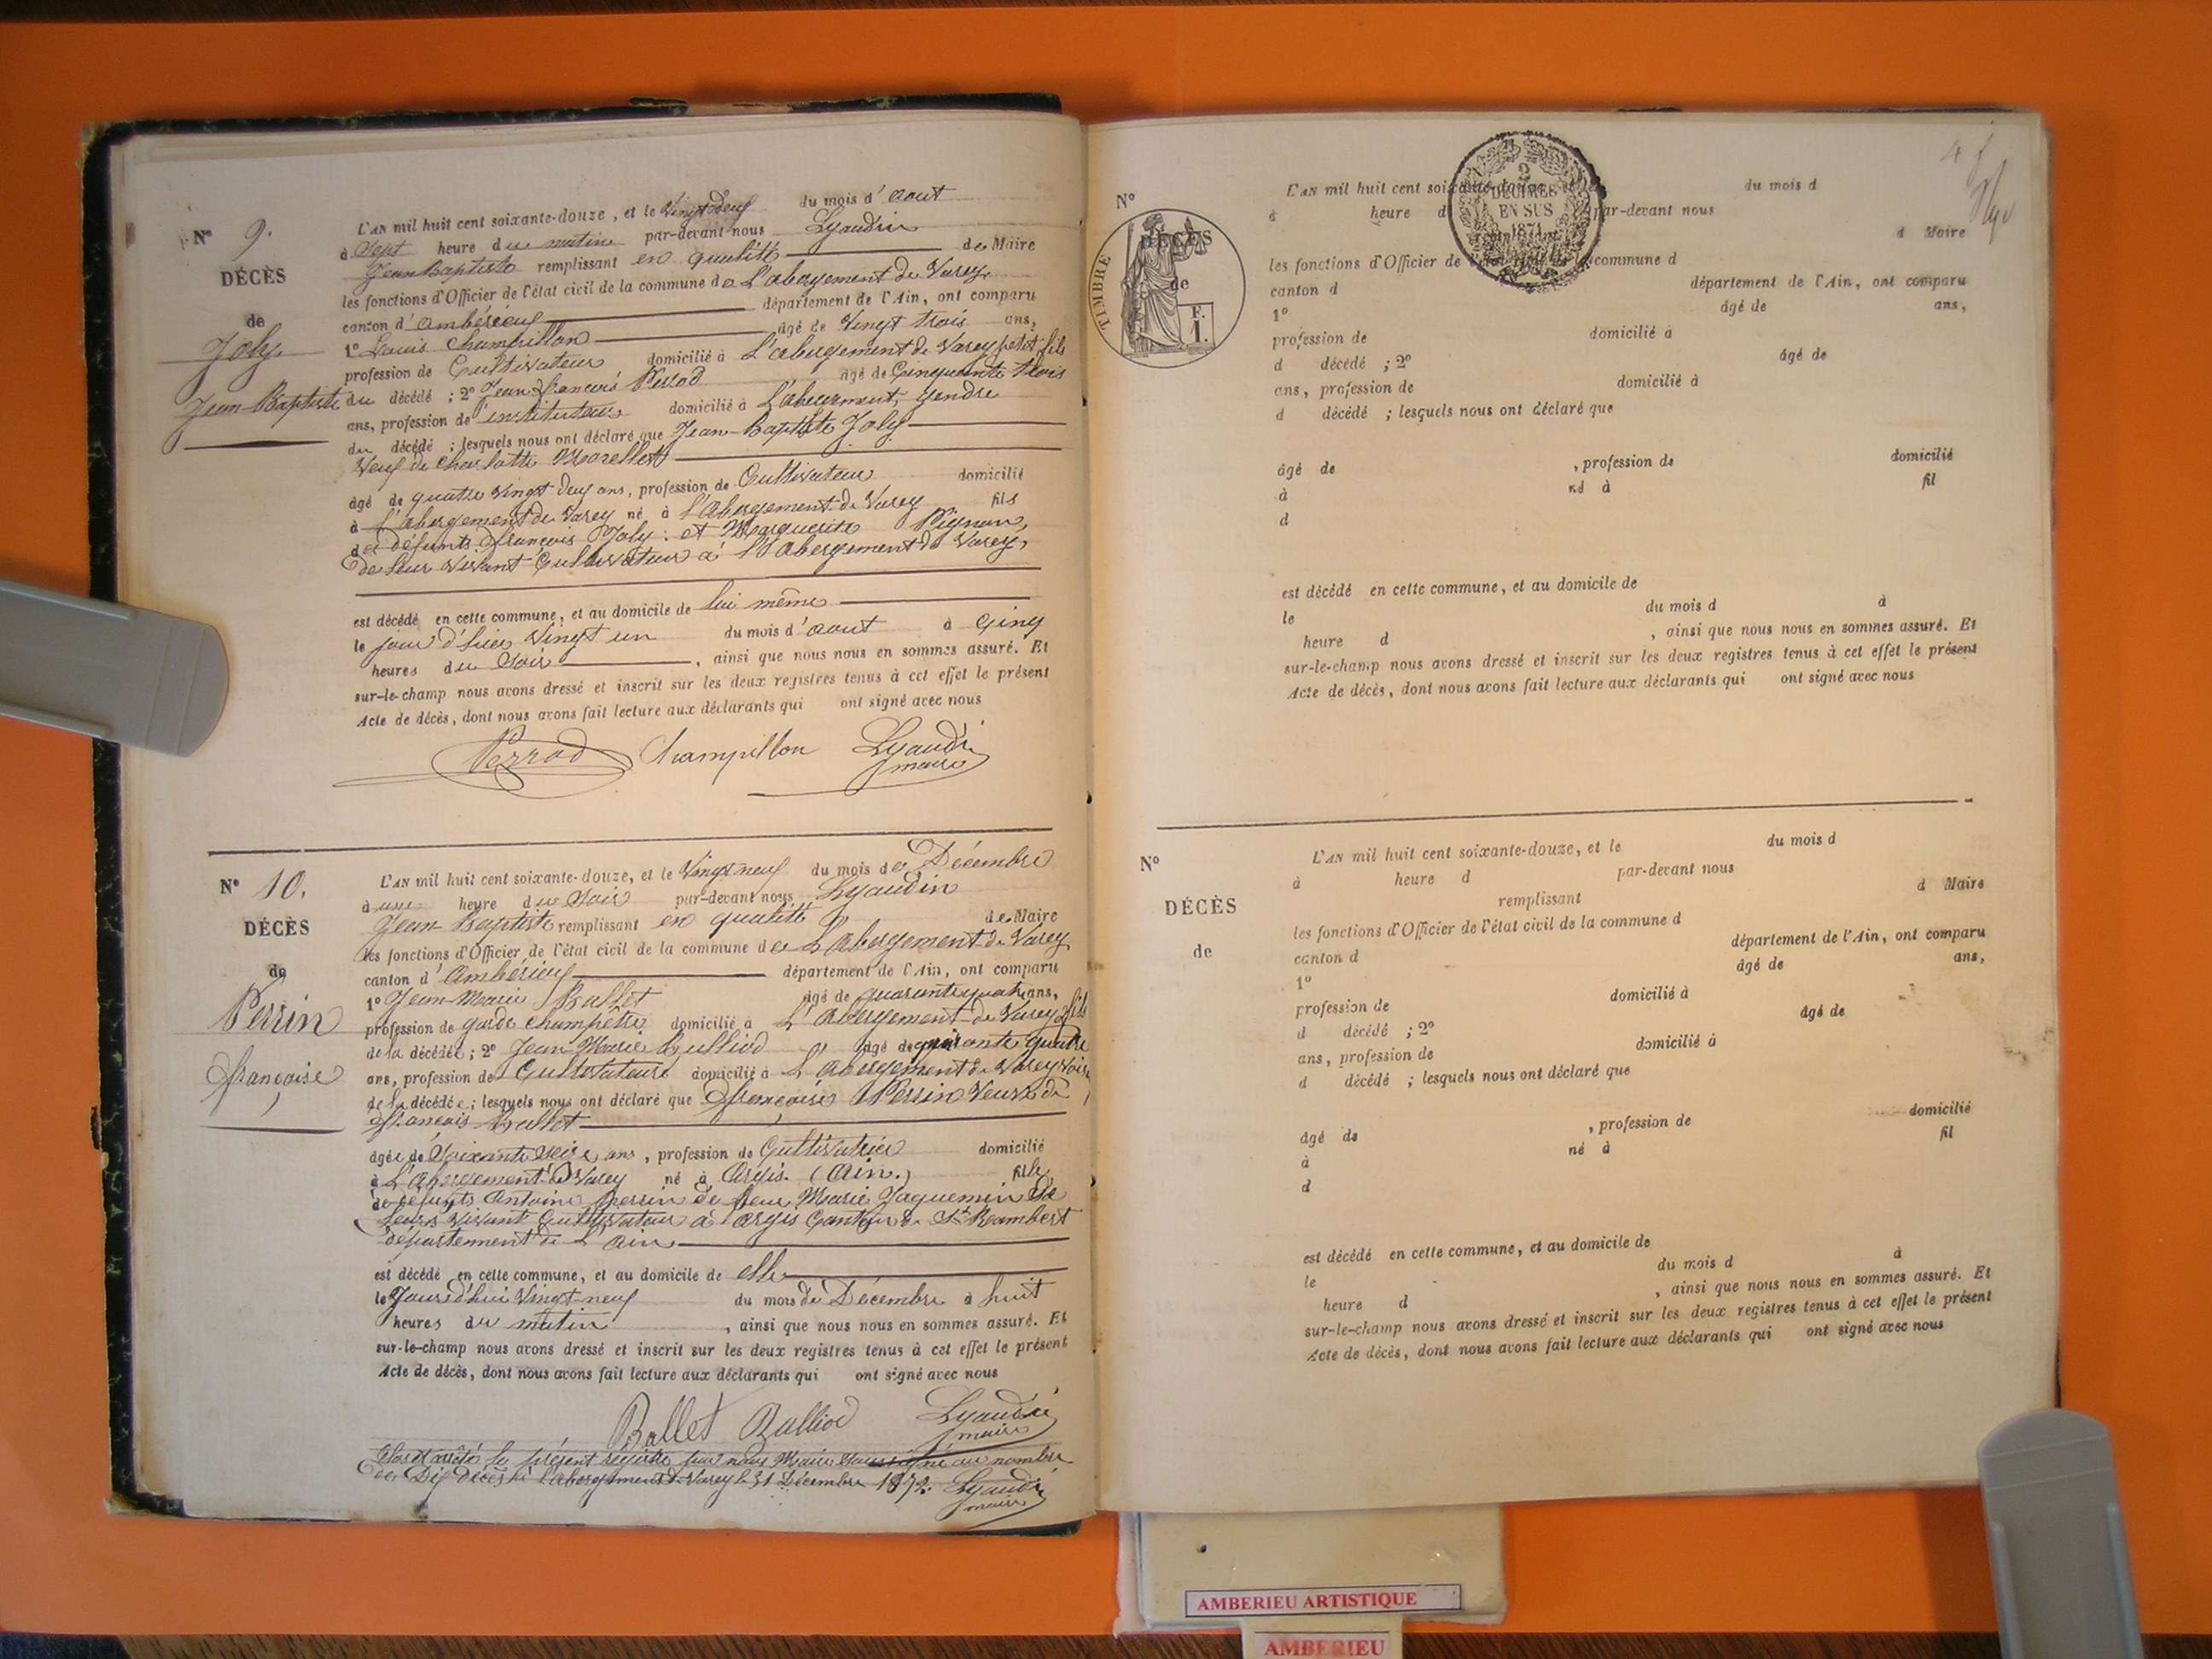 Nº 9.
DÉCÈS
de
Joly
Jean-Baptiste
L'AN mil huit cent soixante-douze, et le Vingt deux du mois d'aout
à Sept heure du matin par-devant nous Lyaudin
Jean Baptiste remplissant en qualité de Maire
les fonctions d'Officier de l'état civil de la commune de L'abergement de Varey
canton d'Ambérieux département de l'Ain, ont comparu
1º Louis Champillon âgé de Vingt trois ans,
profession de Cultivateur domicilié à L'abergement de Varey petit fils
du décédé ; 2º Jean François Perrod âgé de Cinquante trois
ans, profession de instituteur domicilié à L'abergement, gendre
du décédé ; lesquels nous ont déclaré que Jean-Baptiste Joly
Veuf de Charlotte Morellet
âgé de quatre Vingt deux ans, profession de Cultivateur domicilié
à L'abergement de Varey né à L'abergement de Varey fils
des défunts François Joly et Marguerite
de leur vivant Cultivateur à L'abergement de Varey
est décédé en cette commune, et au domicile de lui même
le jour d'hier Vingt un du mois d'aout à Cinq
heures du Soir, ainsi que nous nous en sommes assuré. Et
sur-le-champ nous avons dressé et inscrit sur les deux registres tenus à cet effet le présent
Acte de décès, dont nous avons fait lecture aux déclarants qui ont signé avec nous
Perrod Champillon Lyaudin
maire
Nº 10.
DÉCÈS
de
Perrin
Françoise
L'AN mil huit cent soixante-douze, et le Vingt neuf du mois de Décembre
à une heure du Soir par-devant nous Lyaudin
Jean Baptiste remplissant en qualité de Maire
les fonctions d'Officier de l'état civil de la commune de L'abergement de Varey
canton d'Ambérieux département de l'Ain, ont comparu
1º Jean-Marie Ballet âgé de quarante quatre ans,
profession de garde champêtre domicilié à L'abergement de Varey fils
de la décédée ; 2º Jean Marie Bulliod âgé de quarante quatre
ans, profession de Cultivateur domicilié à L'abergement de Varey Voisin
de la décédée ; lesquels nous ont déclaré que Françoise Perrin Veuve de
François Ballet
âgée de Soixante Seize ans, profession de Cultivatrice domicilié
à L'abergement de Varey né à Argis. (Ain.) fille
de défunts Antoine Perrin et de Marie Jaquemin de
leurs vivant Cultivateur à Argis Canton de St Rambert
département de L'ain
est décédé en cette commune, et au domicile de elle
le Jour d'hui Vingt-neuf du mois de Décembre à huit
heures du matin, ainsi que nous nous en sommes assuré. Et
sur-le-champ nous avons dressé et inscrit sur les deux registres tenus à cet effet le présent
Acte de décès, dont nous avons fait lecture aux déclarants qui ont signé avec nous
Ballet Bulliod Lyaudin
maire
Clos et arrêté le présent régistre par nous Maire soussigné au nombre
de Dix décès à L'abergement de Varey le 31 Décembre 1872. Lyaudin
maire
Nº
DÉCÈS
de
TIMBRE
F.
1.
2
DÉCIMES
EN SUS
1871
L'AN mil huit cent soixante-douze, et le du mois d
à heure d par-devant nous
d Maire
les fonctions d'Officier de l'état civil de la commune d
canton d département de l'Ain, ont comparu
1º âgé de ans,
profession de domicilié à
d décédé ; 2º âgé de
ans, profession de domicilié à
d décédé ; lesquels nous ont déclaré que
âgé de , profession de domicilié
à né à fil
d
est décédé en cette commune, et au domicile de
le du mois d à
heure d , ainsi que nous nous en sommes assuré. Et
sur-le-champ nous avons dressé et inscrit sur les deux registres tenus à cet effet le présent
Acte de décès, dont nous avons fait lecture aux déclarants qui ont signé avec nous
Nº
DÉCÈS
de
L'AN mil huit cent soixante-douze, et le du mois d
à heure d par-devant nous
remplissant d Maire
les fonctions d'Officier de l'état civil de la commune d
canton d département de l'Ain, ont comparu
1º âgé de ans,
profession de domicilié à
d décédé ; 2º âgé de
ans, profession de domicilié à
d décédé ; lesquels nous ont déclaré que
âgé de , profession de domicilié
à né à fil
d
est décédé en cette commune, et au domicile de
le du mois d à
heure d , ainsi que nous nous en sommes assuré. Et
sur-le-champ nous avons dressé et inscrit sur les deux registres tenus à cet effet le présent
Acte de décès, dont nous avons fait lecture aux déclarants qui ont signé avec nous
AMBERIEU ARTISTIQUE
AMBERIEU